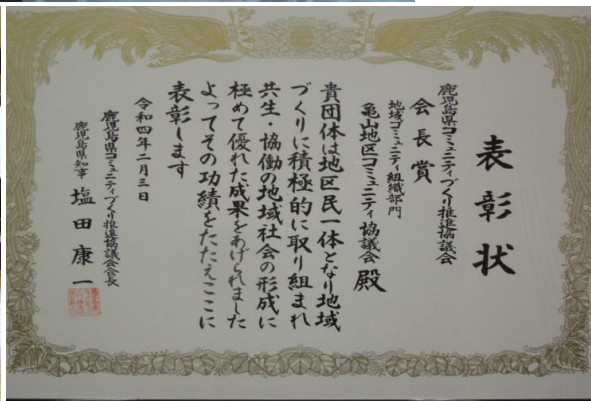 表彰状
鹿児島県コミュニティづくり推進協議会
会長賞
地域コミュニティ組織部門
亀山地区コミュニティ協議会 殿
貴団体は地区民一体となり地域
づくりに積極的に取り組まれ
共生・協働の地域社会の形成に
極めて優れた成果をあげられました
よってその功績をたたえここに
表彰します
令和四年二月三日
鹿児島県コミュニティづくり推進協議会会長
鹿児島県知事 塩田康一